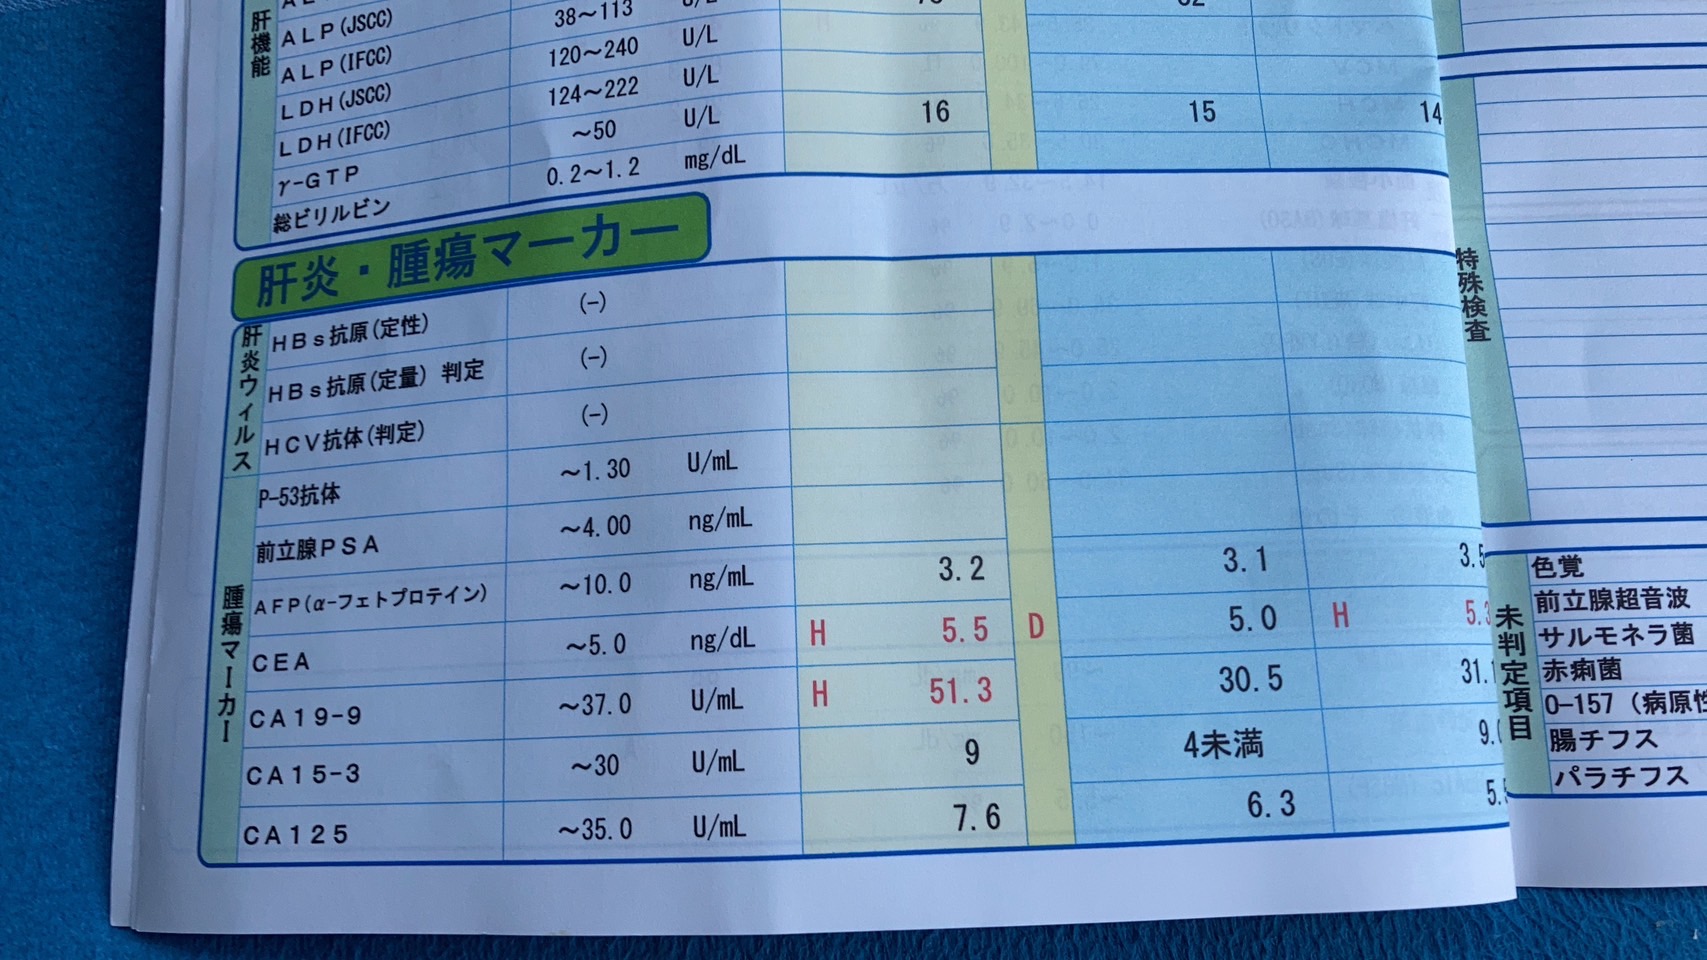 肝機能
ALP(JSCC) 38～113 U/L
ALP(IFCC) 120～240 U/L
LDH(JSCC) 124～222 U/L
LDH(IFCC) ～50 U/L 16 15 14
γ-GTP 0.2～1.2 mg/dL
総ビリルビン
肝炎・腫瘍マーカー
肝炎ウィルス
HBs抗原(定性) (-)
HBs抗原(定量) 判定 (-)
HCV抗体(判定) (-)
腫瘍マーカー
P-53抗体 ～1.30 U/mL
前立腺PSA ～4.00 ng/mL
AFP(α-フェトプロテイン) ～10.0 ng/mL 3.2 3.1 3.5
CEA ～5.0 ng/dL H 5.5 D 5.0 H 5.3
CA19-9 ～37.0 U/mL H 51.3 30.5 31.1
CA15-3 ～30 U/mL 9 4未満 9.0
CA125 ～35.0 U/mL 7.6 6.3 5.
特殊検査
未判定項目
色覚
前立腺超音波
サルモネラ菌
赤痢菌
O-157 (病原性
腸チフス
パラチフス